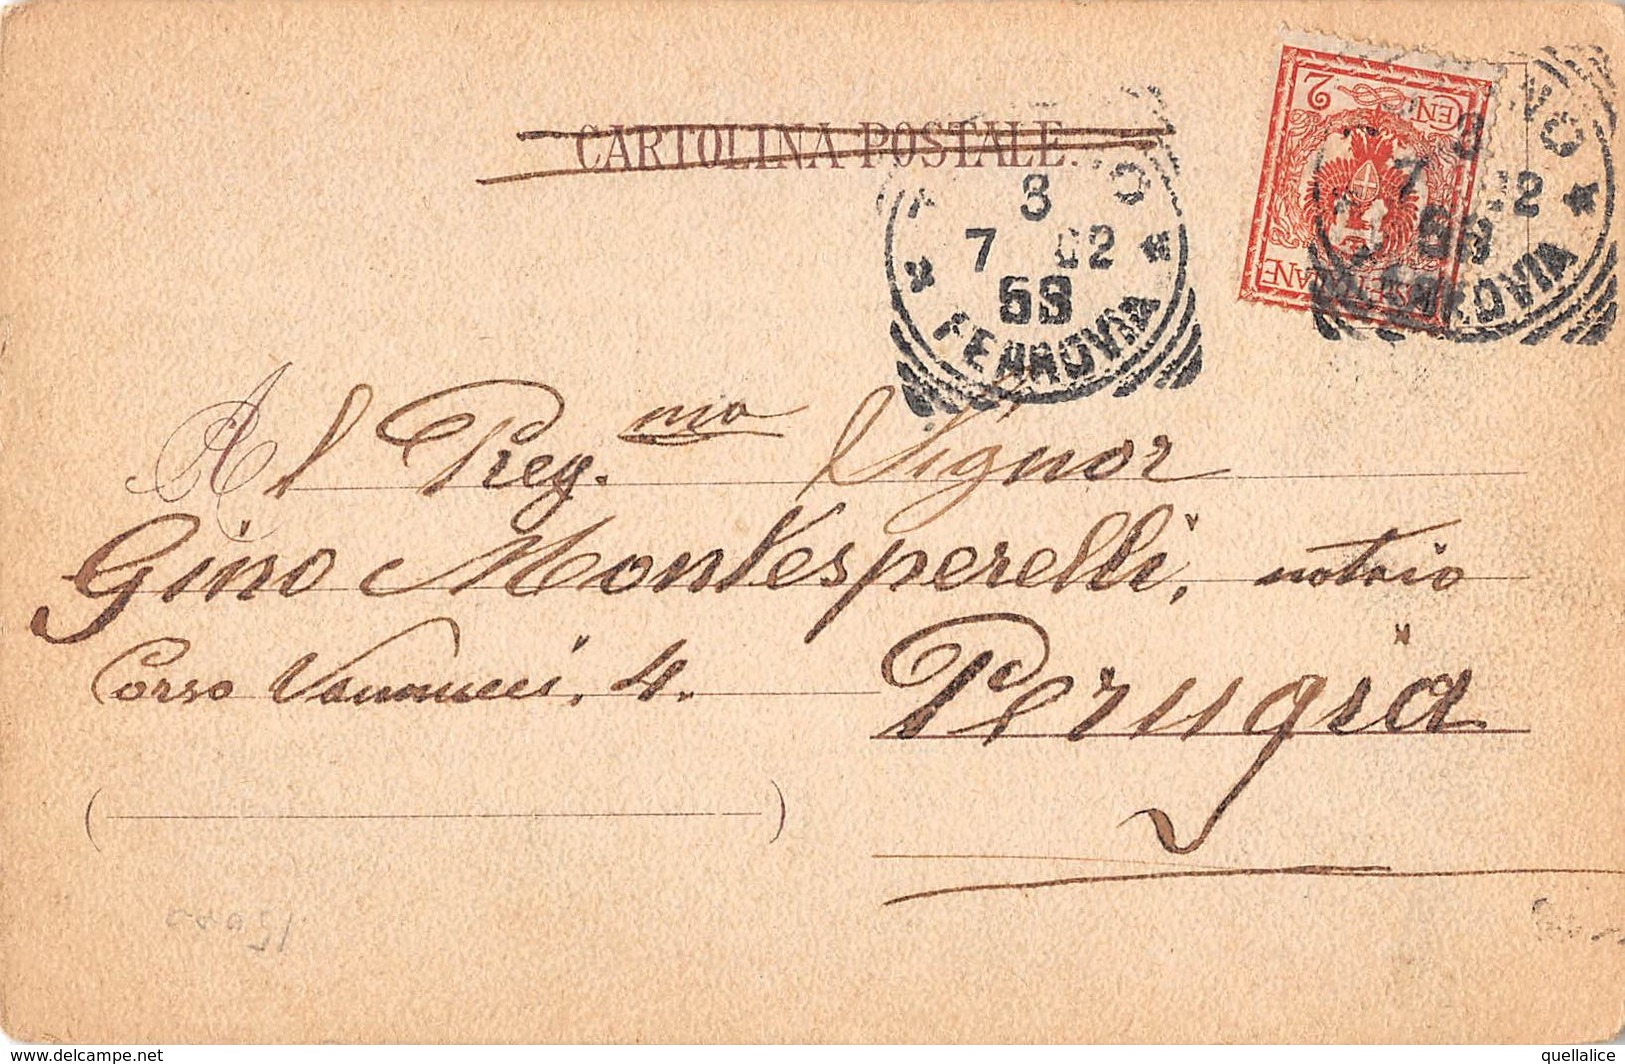 CARTOLINA POSTALE
3
7 02
5S
FERROVIA
2
CEN
POSTE ITALIANE
3
7 02
5S
FERROVIA
Al Preg.mo Signor
Gino Montesperelli, notaio
Corso Vannucci, 4.
Perugia
( )
https://www.delcampe.net
quellalice